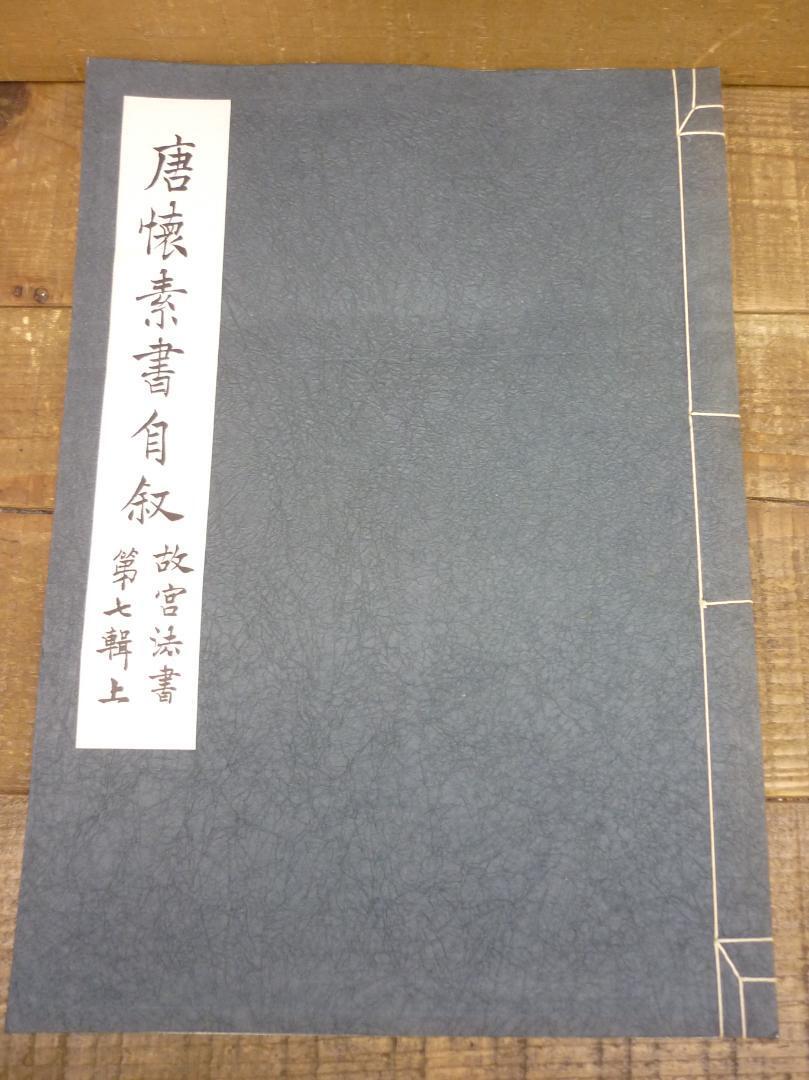 唐懷素書自叙
故宮法書
第七輯上